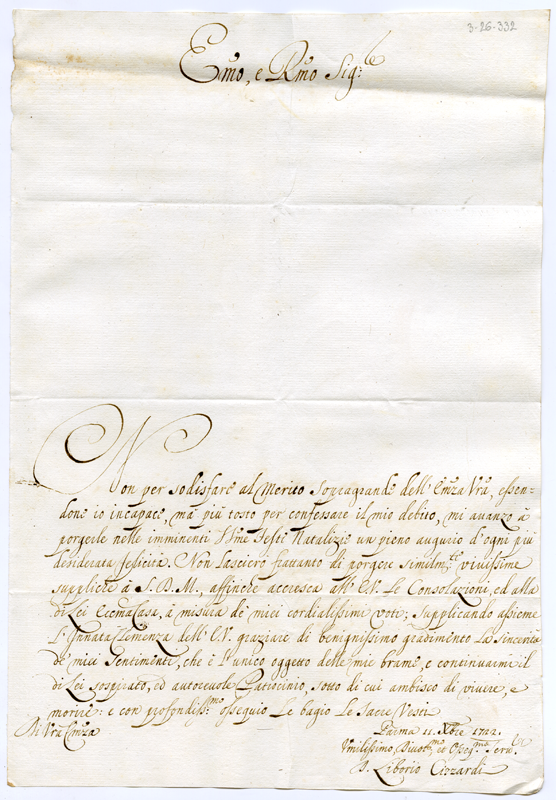 3-26-332
Emo, e Rmo Sig:re
Non per sodisfare al Merito sopragrande dell' Emza Vrã, essen-
done io incapace, mà più tosto per confessare il mio debito, mi avanzo à
porgerle nelle imminenti SSme Feste Natalizie un pieno augurio d'ogni più
desiderata felicità. Non lascierò frattanto di porgere similmte vivissime
suppliche à S. D. M., affinche accresca all' E.V. Le Consolazioni, ed alla
di Lei Eccma Casa, à misura de' miei cordialissimi voti; Supplicando assieme
L'Innata Clemenza dell' E.V. graziare di benignissimo gradimento La sincerità
de' miei sentimenti, che è l'unico oggetto delle mie brame, e continuarmi il
di Lei sospirato, ed autorevole Patrocinio, sotto di cui ambisco di vivere, e
morire: e con profondissmo ossequio Le bagio Le Sacre Vesti
Di Vrã Emza
Parma 11. Xbre 1722.
Umilissimo, Divotmo, ed Osseqmo Servre
D. Liborio Ciozardi